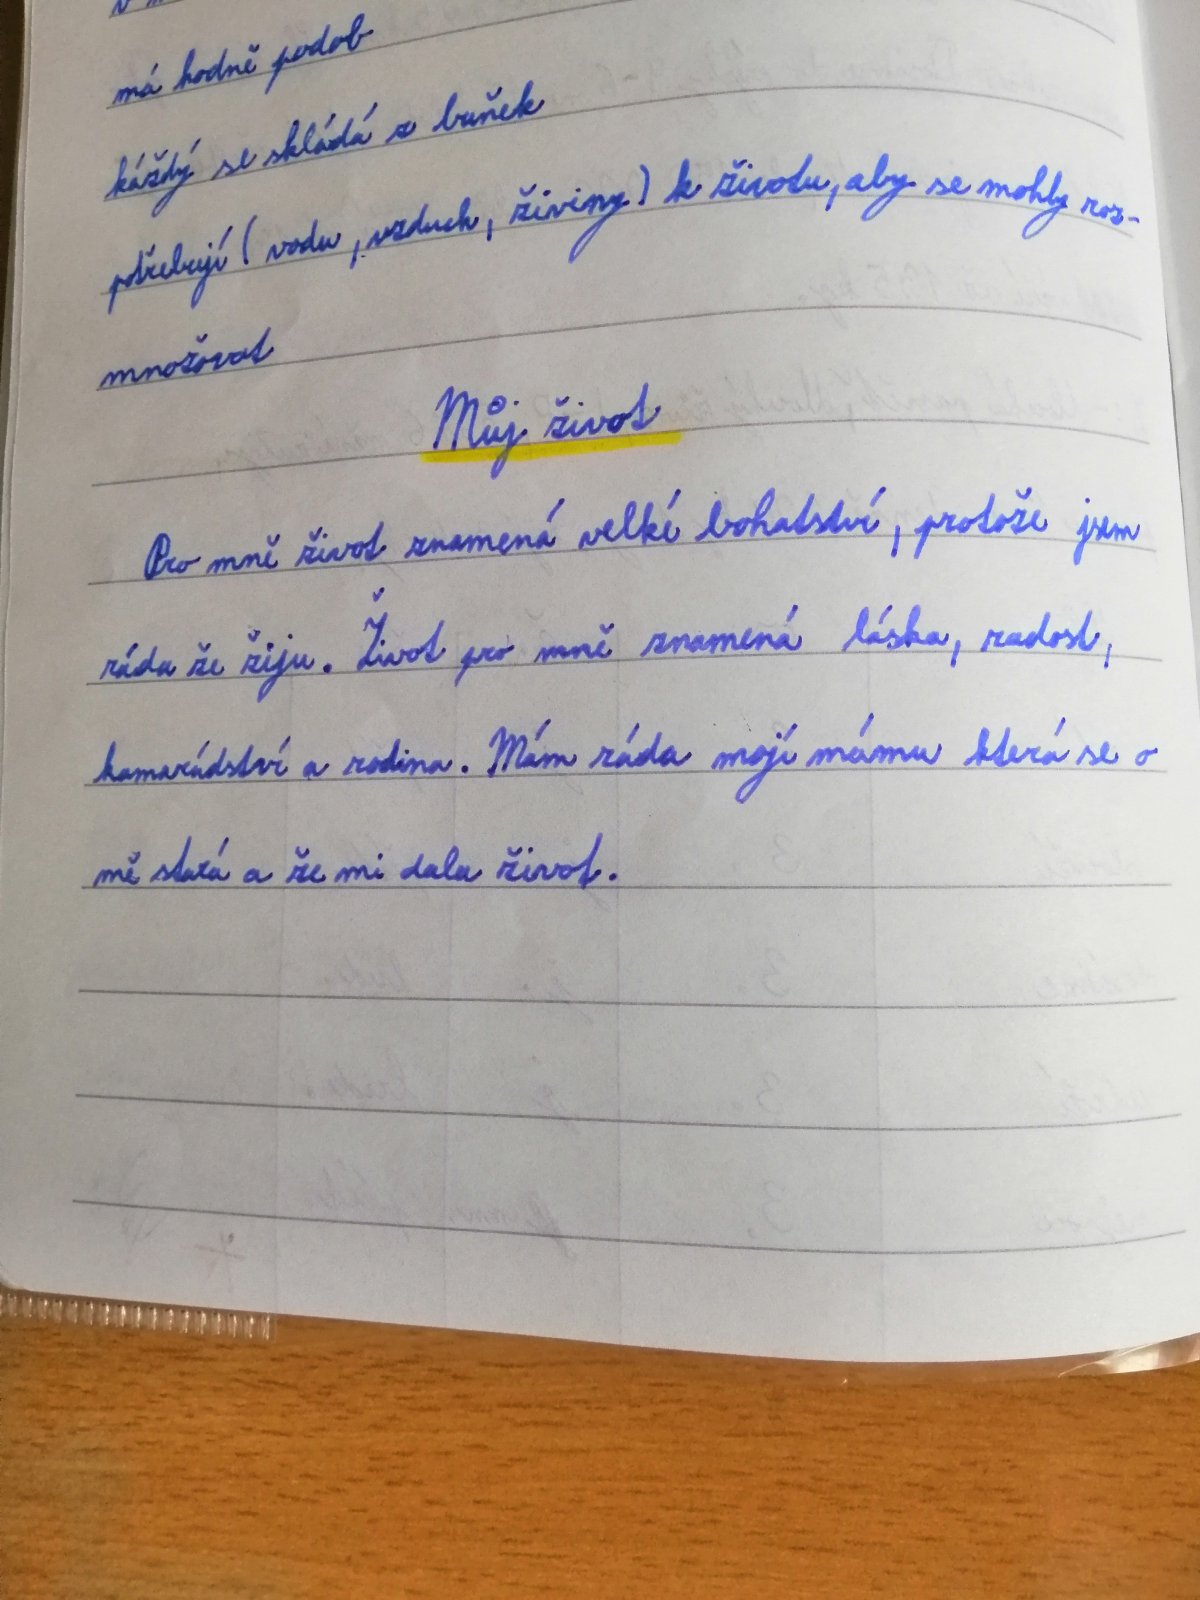 má hodně podob
káždý se skládá z buňek
potřebují (vodu, vzduch, živiny) k životu, aby se mohly roz-
množovat
Můj život
Pro mně život znamená velké bohatství, protože jsem
ráda že žiju. Život pro mně znamená láska, radost,
kamarádství a rodina. Mám ráda mojí mámu která se o
mě stará a že mi dala život.